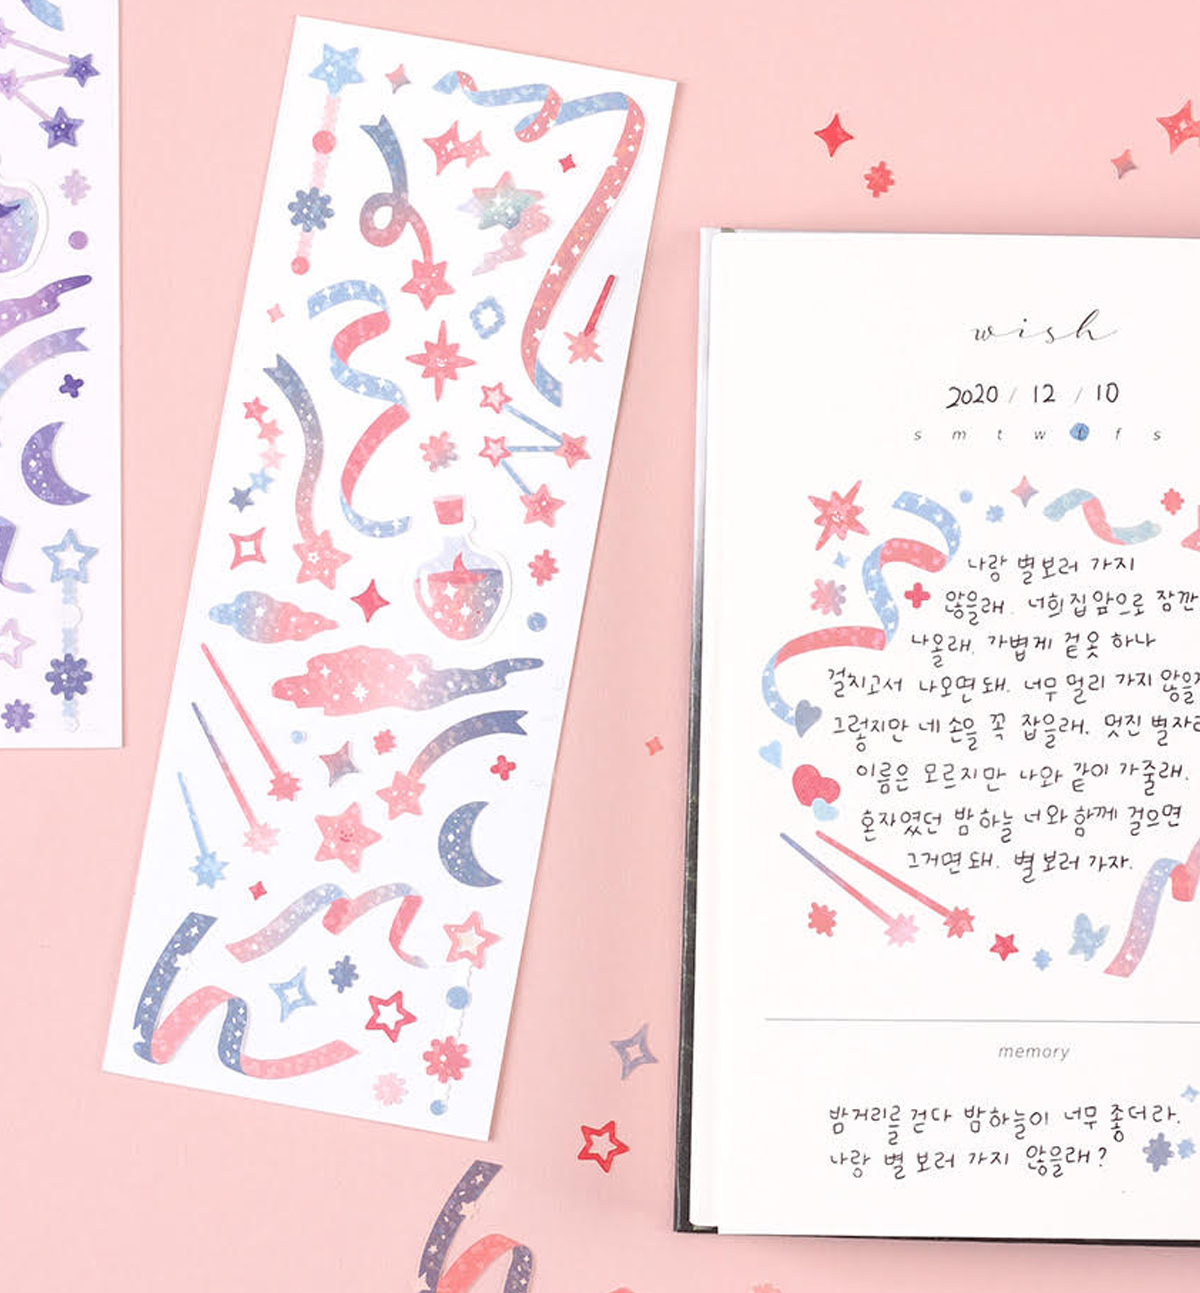 wish
2020 / 12 / 10
s m t w t f s
나랑 별 보러 가지
않을래. 너희 집 앞으로 잠깐
나올래. 가볍게 겉옷 하나
걸치고서 나오면 돼. 너무 멀리 가지 않을게
그렇지만 네 손을 꼭 잡을래. 멋진 별자리
이름은 모르지만 나와 같이 가줄래.
혼자였던 밤하늘 너와 함께 걸으면
그거면 돼. 별 보러 가자.
memory
밤거리를 걷다 밤하늘이 너무 좋더라.
나랑 별 보러 가지 않을래?